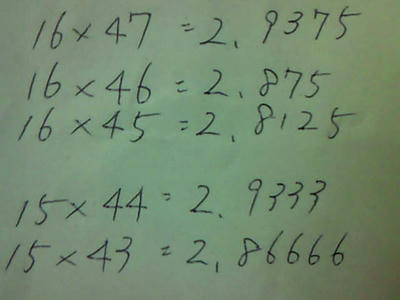 16 × 47 = 2.9375
16 × 46 = 2.875
16 × 45 = 2.8125
15 × 44 = 2.9333
15 × 43 = 2.86666